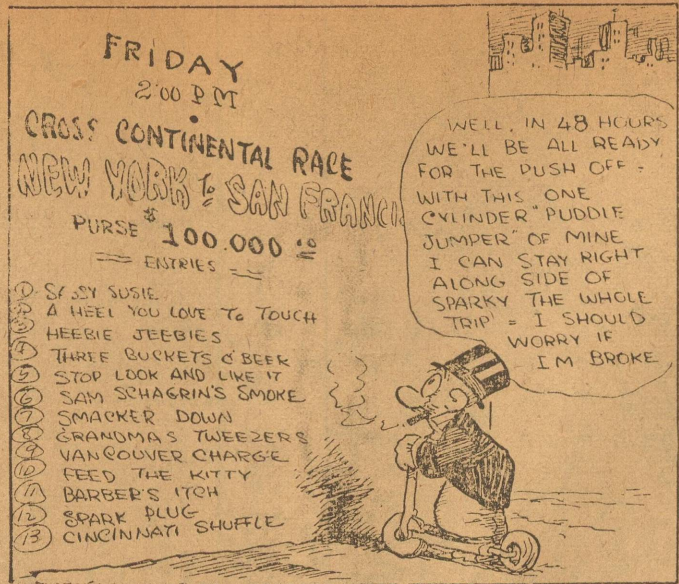 FRIDAY
2:00 P M
CROSS CONTINENTAL RACE
NEW YORK To SAN FRANCIS
PURSE $100.000 00
ENTRIES
1 SASSY SUSIE
2 A HEEL YOU LOVE To TOUCH
3 HEEBIE JEEBIES
4 THREE BUCKETS O'BEEK
5 STOP LOOK AND LIKE IT
6 SAM SCHAGRIN'S SMOKE
7 SMACKER DOWN
8 GRANDMAS TWEEZERS
9 VANCOUVER CHARGE
10 FEED THE KITTY
11 BARBER'S ITCH
12 SPARK PLUG
13 CINCINNATI SHUFFLE
WELL, IN 48 HOURS
WE'LL BE ALL READY
FOR THE PUSH OFF =
WITH THIS ONE
CYLINDER "PUDDLE
JUMPER" OF MINE
I CAN STAY RIGHT
ALONG SIDE OF
SPARKY THE WHOLE
TRIP = I SHOULD
WORRY IF
I'M BROKE